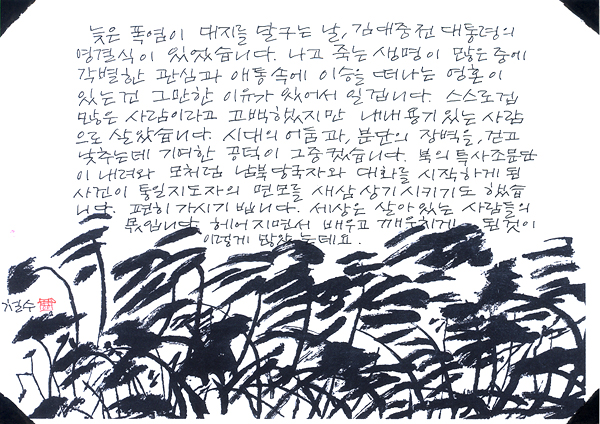 늦은 폭염이 대지를 달구는 날, 김대중 전 대통령의
영결식이 있었습니다. 나고 죽는 생명이 많은 중에
각별한 관심과 애통속에 이승을 떠나는 영혼이
있는건 그만한 이유가 있어서 일겁니다. 스스로 겁
많은 사람이라고 고백했었지만 내내 용기있는 사람
으로 살았습니다. 시대의 어둠과, 분단의 장벽을, 걷고
낮추는데 기여한 공덕이 그중 컸습니다. 북의 특사조문단
이 내려와 모처럼 남북당국자와 대화를 시작하게 된
사건이 통일지도자의 면모를 새삼 상기시키기도 했습
니다. 편히 가시기 빕니다. 세상은 살아있는 사람들의
몫입니다. 헤어지면서 배우고 깨우치게 된 것이
이렇게 많았는데요.
철수